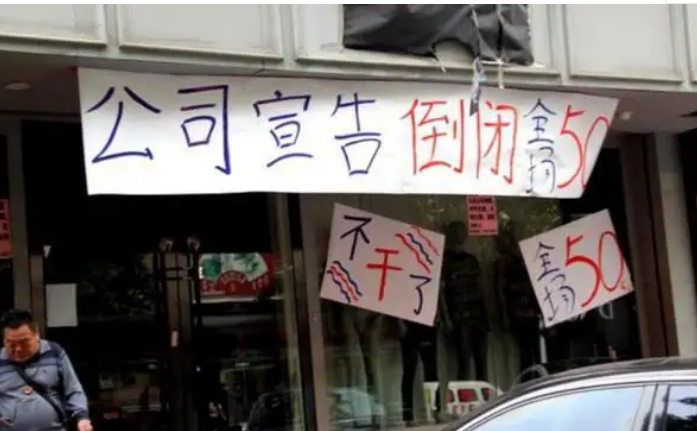 公司宣告倒闭全场50
不干了
全场50元